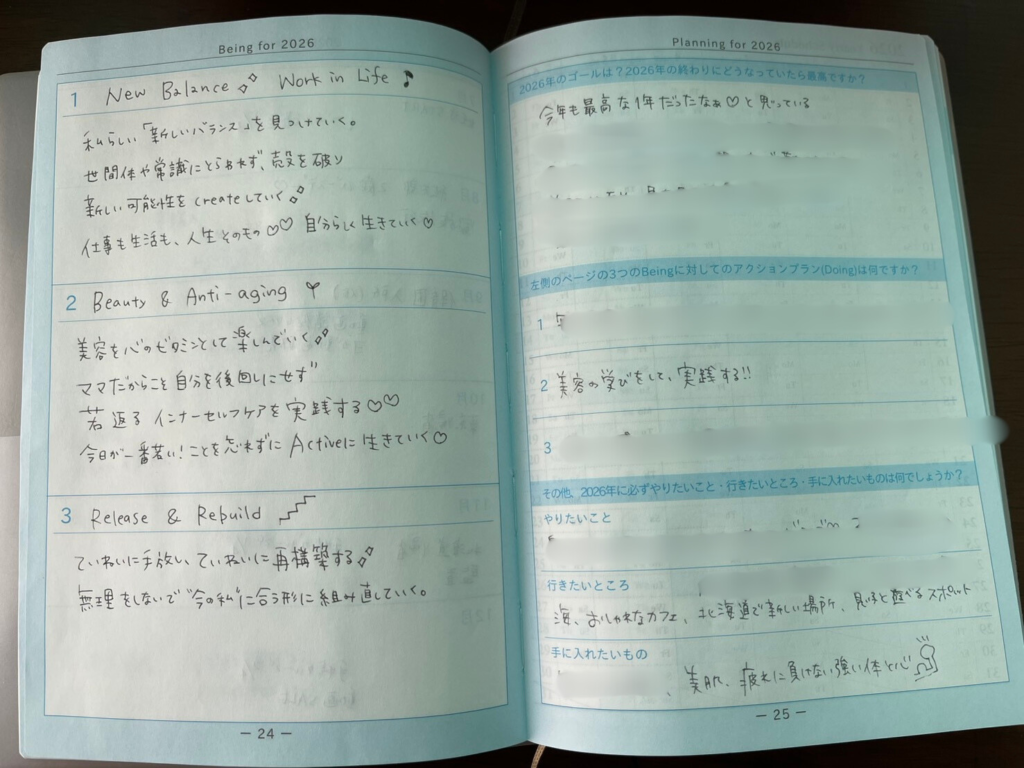 Being for 2026
1 New Balance Work in Life♪
私らしい「新しいバランス」を見つけていく。
世間体や常識にとらわれず、殻を破り
新しい可能性をcreateしていく
仕事も生活も、人生そのもの♡♡ 自分らしく生きていく♡
2 Beauty & Anti-aging
美容を心のビタミンとして楽しんでいく
ママだからこそ自分を後回しにせず
若返る インナーセルフケアを実践する♡♡
今日が一番若い!ことを忘れずに Activeに生きていく♡
3 Release & Rebuild
ていねいに手放し、ていねいに再構築する
無理をしないで"今の私"に合う形に組み直していく。
― 24 ―
Planning for 2026
2026年のゴールは?2026年の終わりにどうなっていたら最高ですか?
今年も最高な1年だったなぁ♡と思っている
左側のページの3つのBeingに対してのアクションプラン(Doing)は何ですか?
1
2 美容の学びをして、実践する!!
3
その他、2026年に必ずやりたいこと・行きたいところ・手に入れたいものは何でしょうか?
やりたいこと
行きたいところ
海、おしゃれなカフェ、北海道で新しい場所、息子と遊べるスポット
手に入れたいもの
、美肌、疲れに負けない強い体と心
― 25 ―